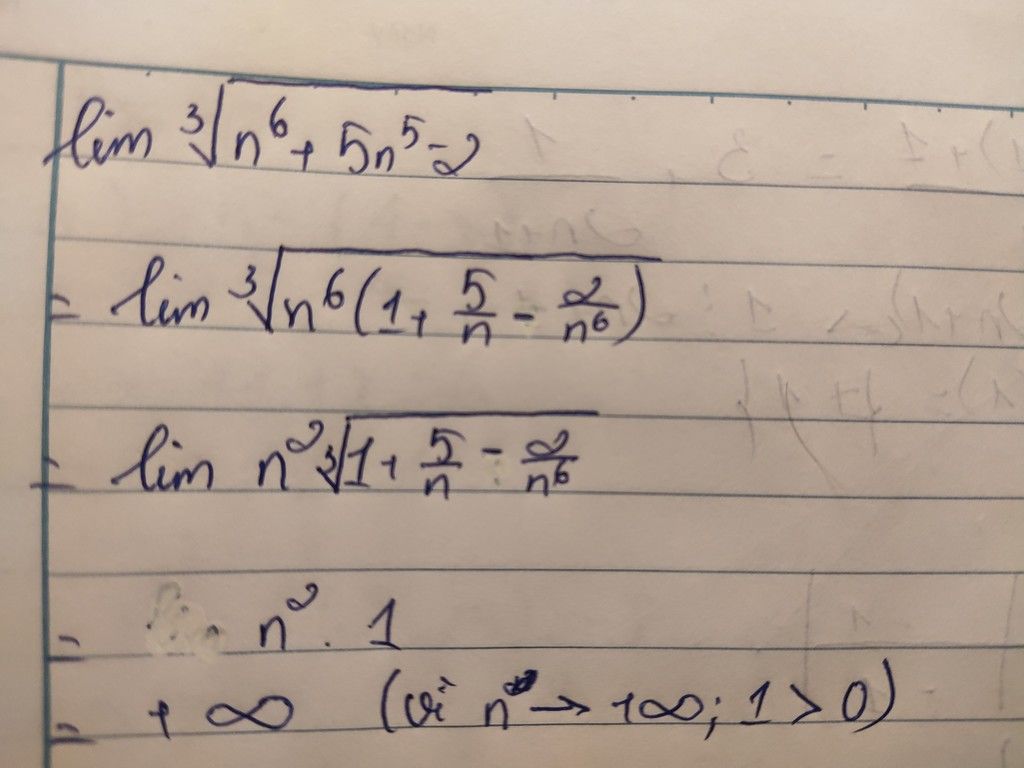 lim ∛(n⁶ + 5n⁵ - 2)
= lim ∛(n⁶(1 + 5/n - 2/n⁶))
= lim n² ∛(1 + 5/n - 2/n⁶)
= n² . 1
= +∞ (vì n² → +∞; 1 > 0)